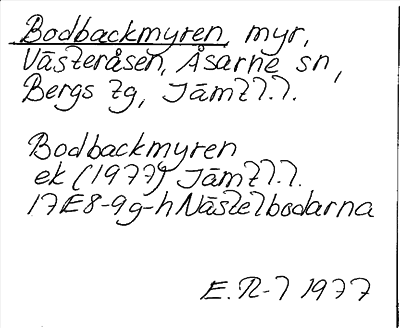 Bodbackmyren, myr,
Västeråsen, Åsarne sn,
Bergs tg, Jämtl.
Bodbackmyren
ek (1977) Jämtl.
17E8-9g-h Nästelbodarna
1977